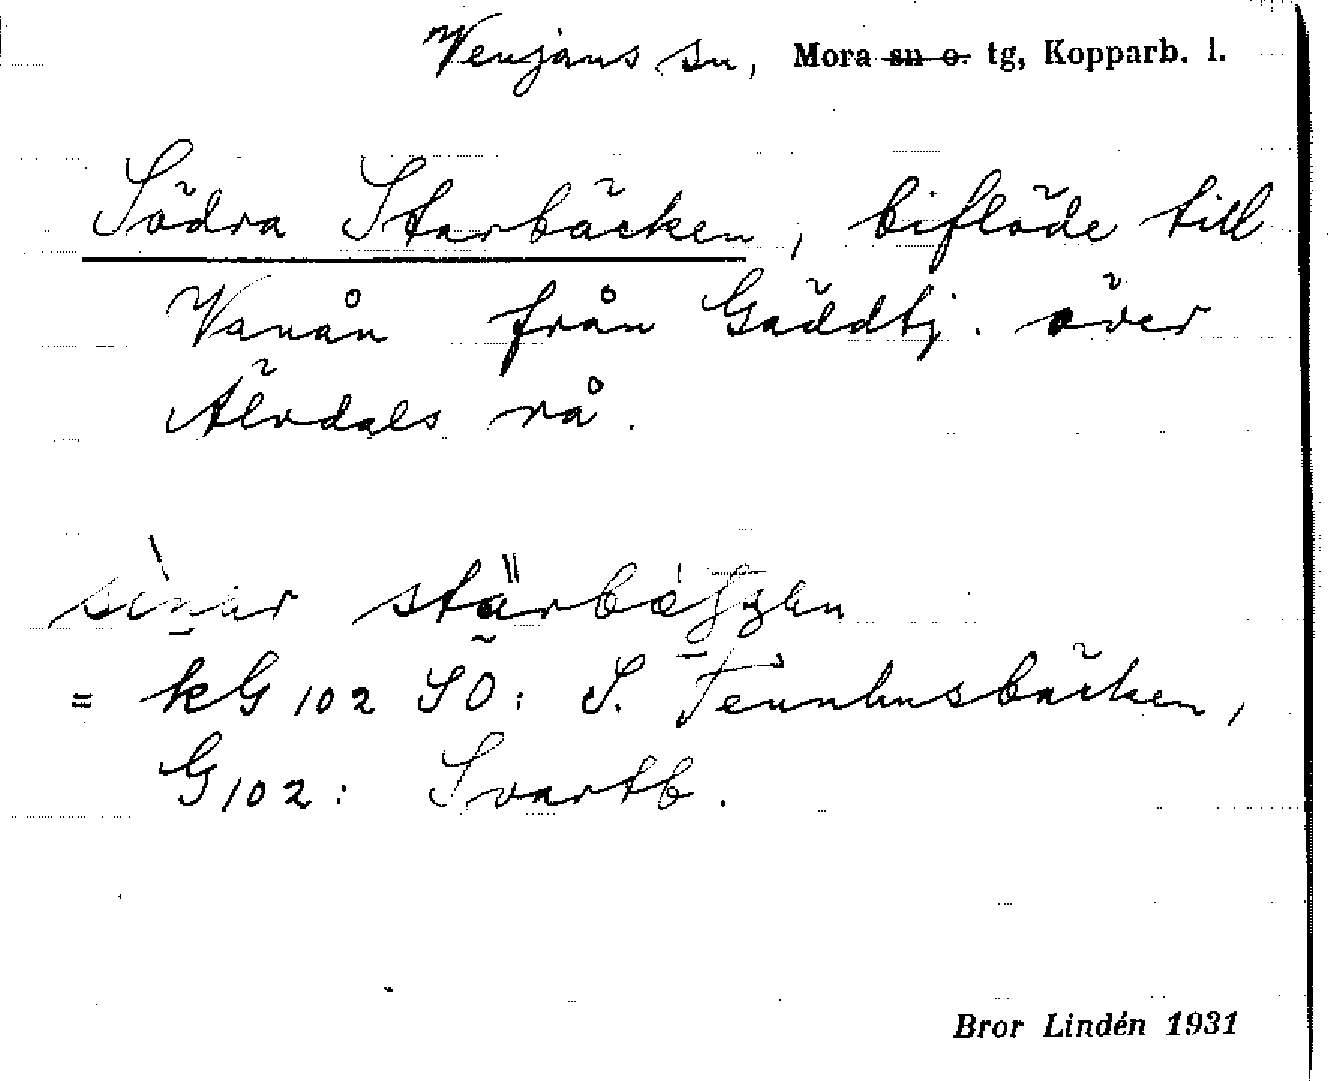 Venjans sn, Mora sn o. tg, Kopparb. l.
Södra Starbäcken, biflöde till
Vanån från Gäddtj. över
Älvdals rå.
= kG 102 SO: S. Tennhusbäcken,
G 102: Svartb.
Bror Lindén 1931